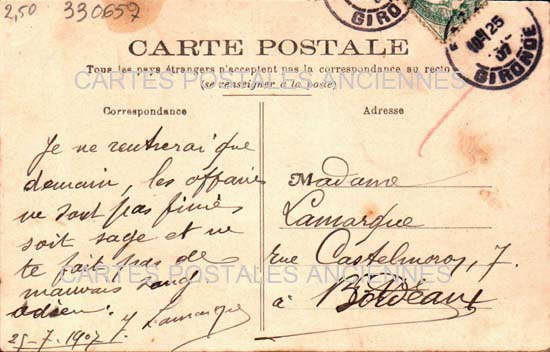 2,50 330657
GIRONDE
10H25
07
GIRONDE
CARTE POSTALE
Tous les pays étrangers n'acceptent pas la correspondance au recto
(se renseigner à la poste)
CARTES POSTALES ANCIENNES
Correspondance
Adresse
Je ne rentrerai que
demain, les affaires
ne sont pas finies
soit sage et ne
te fait pas de
mauvais sang.
adieu.
J Lamarque
25-7-1907
Madame
Lamarque
rue Castelmoron, 7
à Bordeaux
CARTES POSTALES ANCIENNES